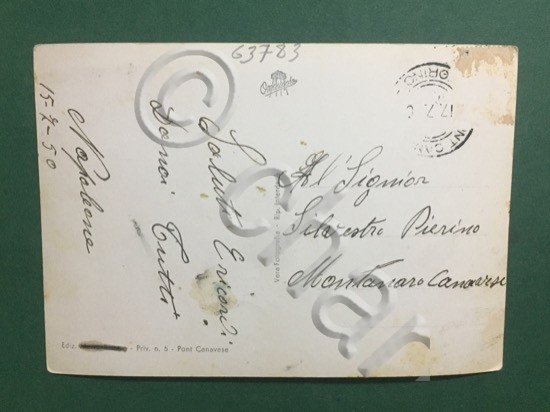 63783
15-7-50
Napoleone
Saluti Ericordi
Danoi Tutti
Al' Signior
Silvestro Pierino
Montanaro Canavese
Vera Fotografia - Rip. Interdetta
Ediz. - Priv. n. 5 - Pont Canavese